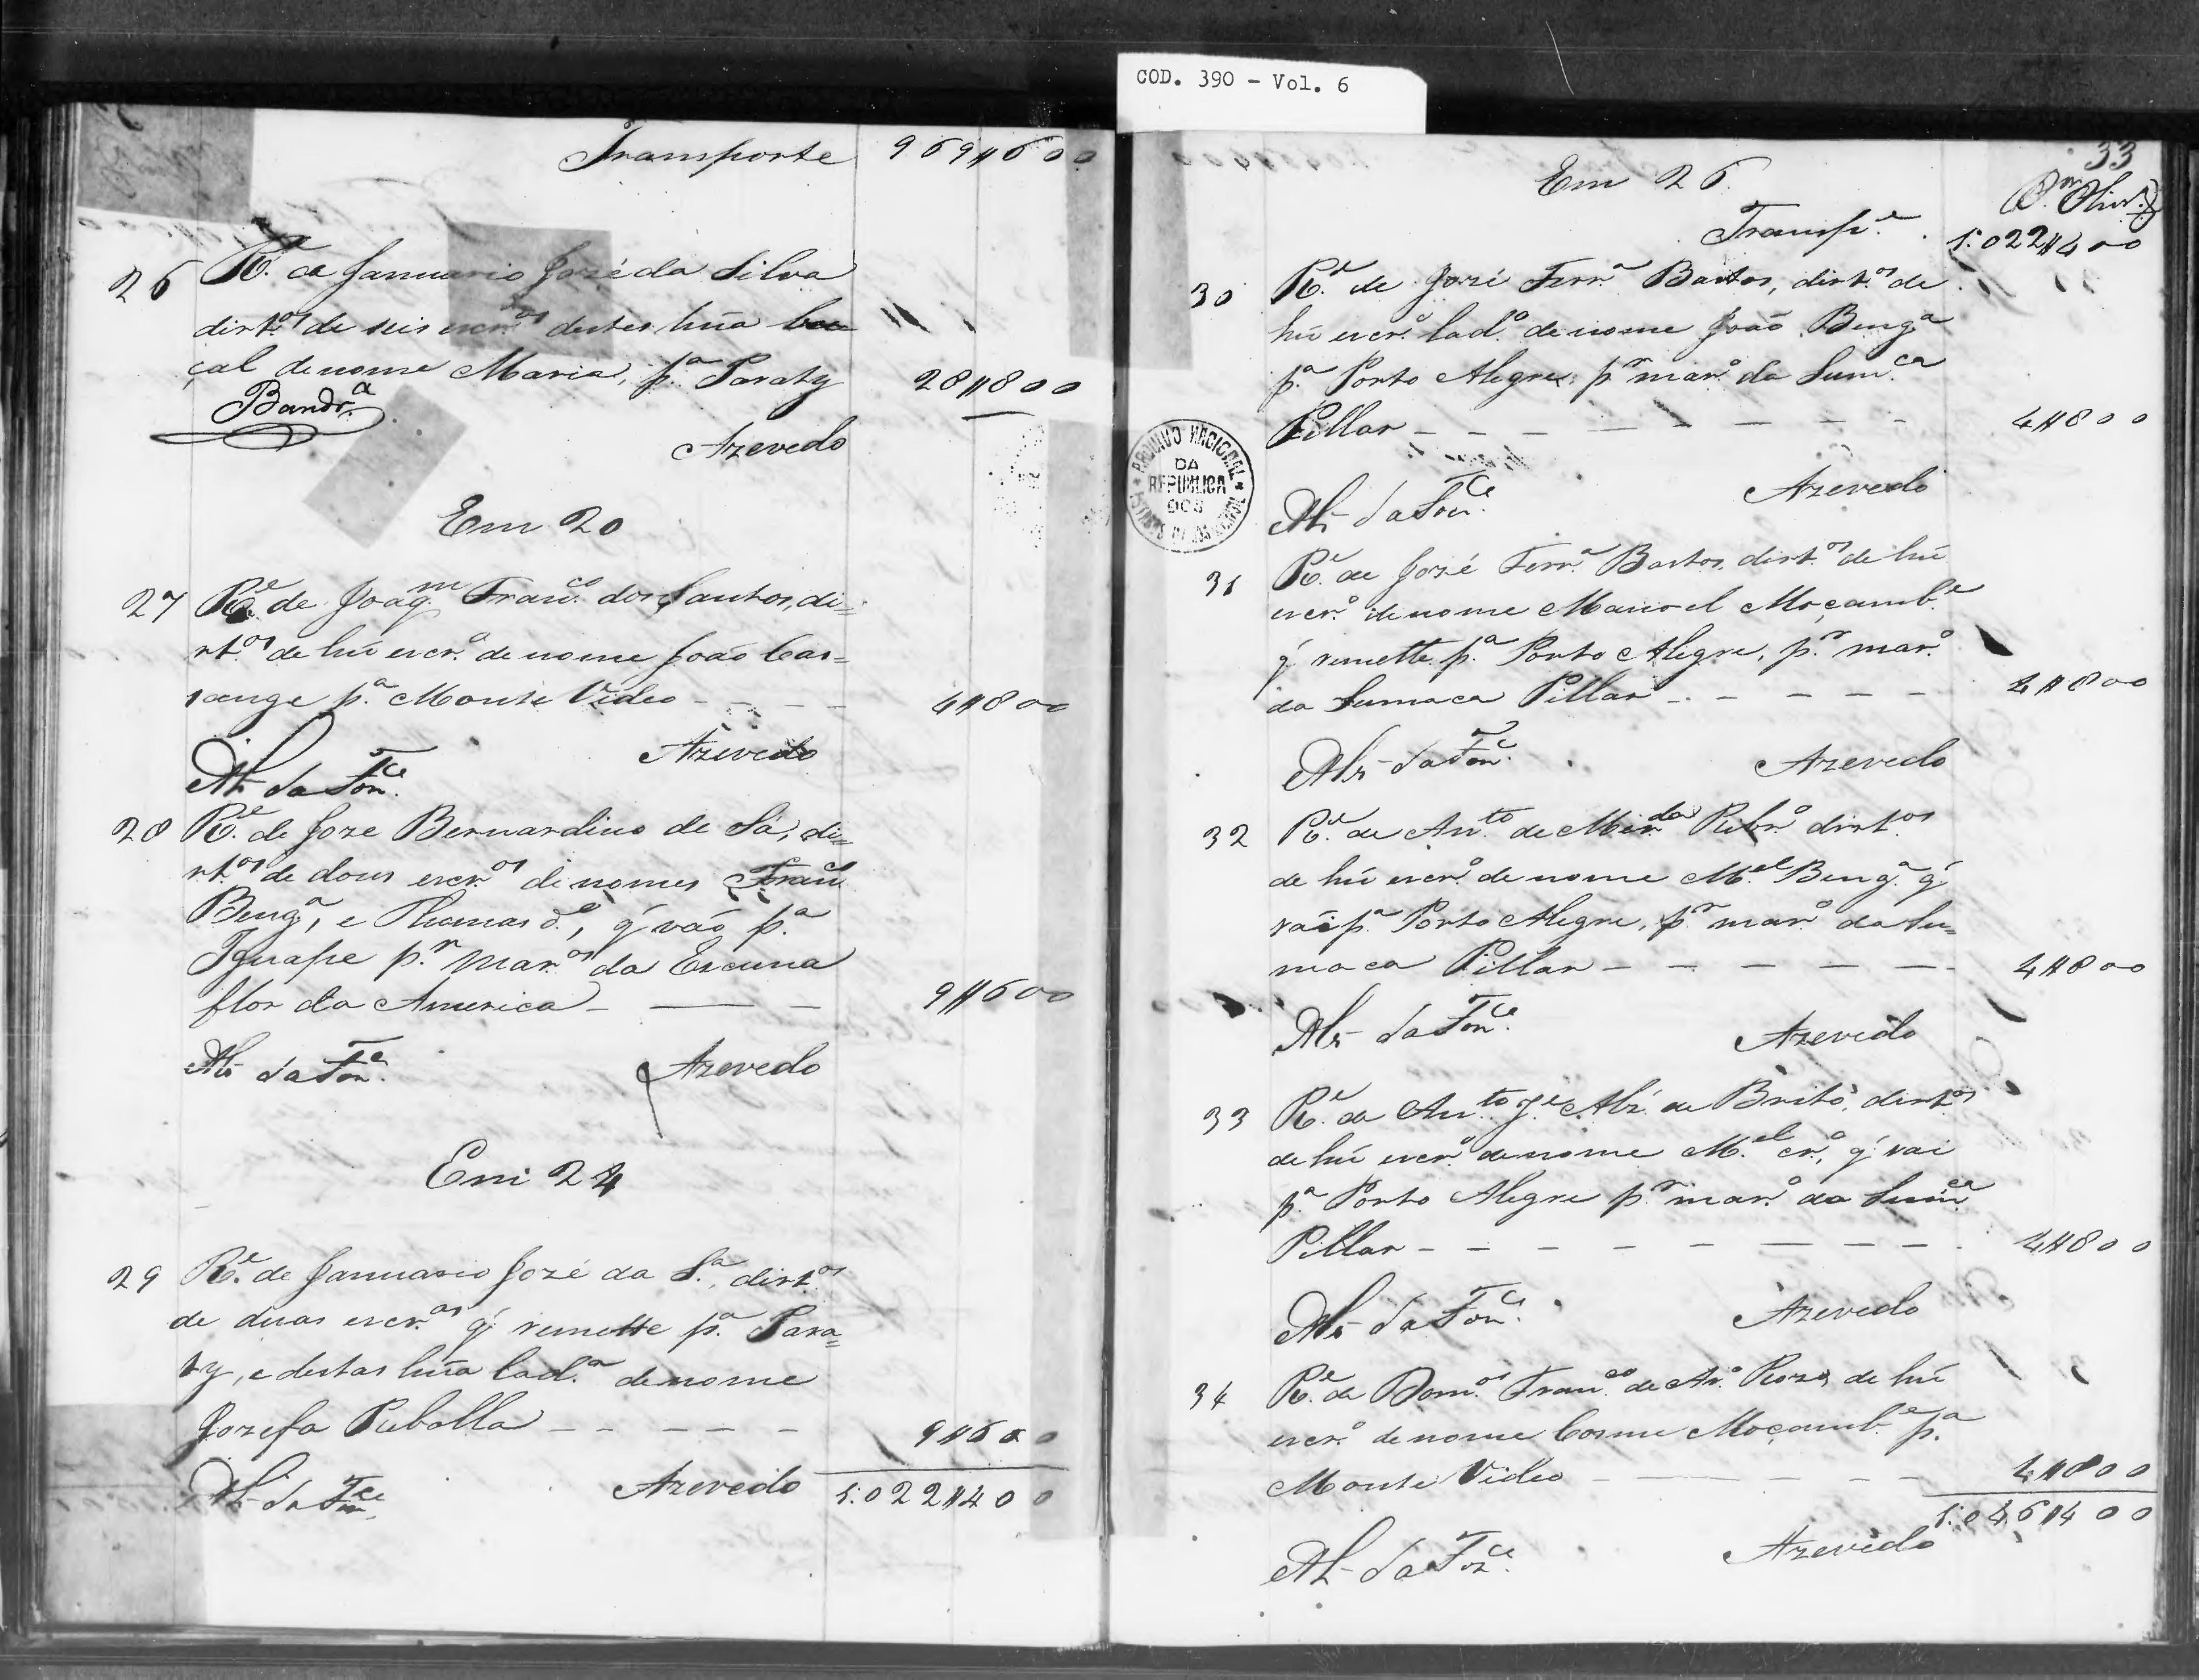 COD. 390 - Vol. 6
Transporte 969$600
26 R.e de Januario José da Silva
dirt.os de seis escr.os destes hũa bo=
çal de nome Maria, p.a Paraty 28$800
Bandr.a
Azevedo
Em 20
27 R.e de Joaq.m Fran.co dos Santos, di=
rt.os de hũ escr.o de nome João Cas=
sange p.a Monte Video - - - - 4$800
Azevedo
Al- da Fon.ce
28 R.e de Joze Bernardino de Sá, di=
rt.os de dous escr.os de nomes Fran.co
Beng.a, e Thomas d.o, q' vão p.a
Iguape p.r mar.os da Escuna
flor da America - — — 9$600
Alz da Fon.ce Azevedo
Em 24
29 R.e de Januario Jozé da S.a, dirt.os
de duas escr.as q' remette p.a Para=
ty, e destas hũa lad.a de nome
Jozefa Rebolla - - - - - 9$600
Al- da Fon.ce Azevedo 1:022$400
33
Em 26
Transp.e 1:022$400
30 R.e de José Ferr.a Bastos, dirt.os de
hũ escr.o lad.o de nome João Beng.a
p.a Porto Alegre, p.r mar.o da Sum.ca
Pillar - - - - - - - - 4$800
ARQUIVO NACIONAL
DA
REPUBLICA
DOS
Azevedo
Alz da Fon.ce
31 R.e de José Ferr.a Bastos, dirt.os de hũ
escr.o de nome Manoel Moçamb.e
q' remette p.a Porto Alegre, p.r mar.o
da Sumaca Pillar - - - - - 4$800
Alz- da Fon.ce Azevedo
32 R.e de An.to de Mir.da Ribr.o dirt.os
de hũ escr.o de nome M.el Beng.a q'
vai p.a Porto Alegre, p.r mar.o da Su=
maca Pillar - - - - - - 4$800
Alz- da Fon.ce Azevedo
33 R.e de An.to J.e Alz' de Brito, dirt.os
de hũ escr.o de nome M.el cr.o, q' vai
p.a Porto Alegre p.r mar.o da Sum.ca
Pillar - - - - - - - - 4$800
Alz- da Fon.ce Azevedo
34 R.e de Dom.os Fran.co de Ar.o Roza, de hũ
escr.o de nome Cosme Moçamb.e p.a
Monte Video - — - - - 4$800
1:046$400
Al- da Fon.ce Azevedo